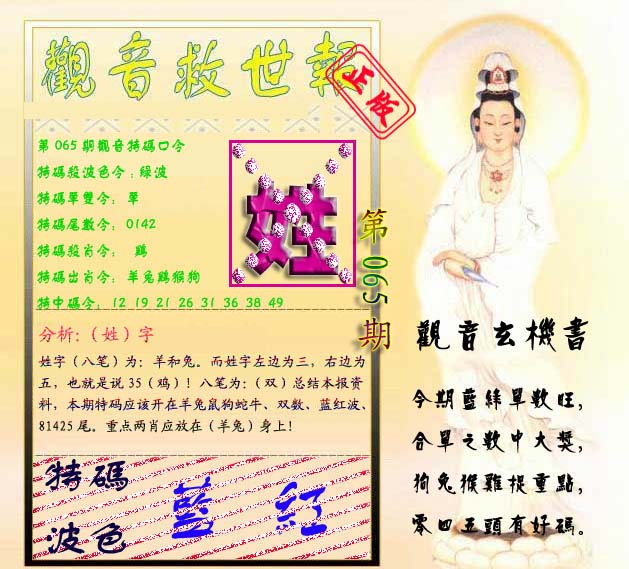 觀音救世報
正版
第065期觀音特碼口令
特碼殺波色令:綠波
特碼單雙令: 單
特碼尾數令: 0142
特碼殺肖令: 鷄
特碼出肖令: 羊兔鷄猴狗
特中碼令: 12 19 21 26 31 36 38 49
姓
第065期
分析:（姓）字
姓字（八笔）为: 羊和兔。而姓字左边为三，右边为
五，也就是说 35（鸡）！八笔为:（双）总结本报资
料，本期特码应该开在羊兔鼠狗蛇牛、双数、蓝红波、
81425 尾。重点两肖应放在（羊兔）身上！
特碼
波色
藍 紅
觀音玄機書
今期藍綠單數旺，
合單之數中大獎，
狗兔猴雞捉重點，
零四五頭有好碼。